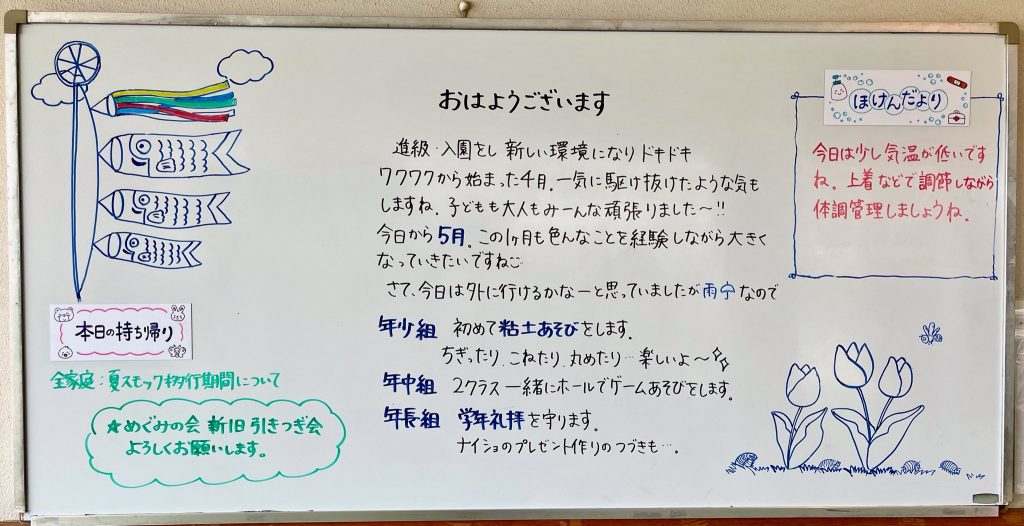 おはようございます
進級・入園をし新しい環境になりドキドキ
ワクワクから始まった4月。一気に駆け抜けたような気も
しますね。子どもも大人もみーんな頑張りました〜!!
今日から5月。この1ヶ月も色んなことを経験しながら大きく
なっていきたいですね
さて、今日は外に行けるかなーと思っていましたが雨なので
年少組 初めて粘土あそびをします。
ちぎったり、こねたり、丸めたり…楽しいよ〜
年中組 2クラス一緒にホールでゲームあそびをします。
年長組 学年礼拝を守ります。
ナイショのプレゼント作りのつづきも…。
ほけんだより
今日は少し気温が低いです
ね。上着などで調節しながら
体調管理しましょうね。
本日の持ち帰り
全家庭:夏スモック移行期間について
☆めぐみの会 新旧引きつぎ会
よろしくお願いします。